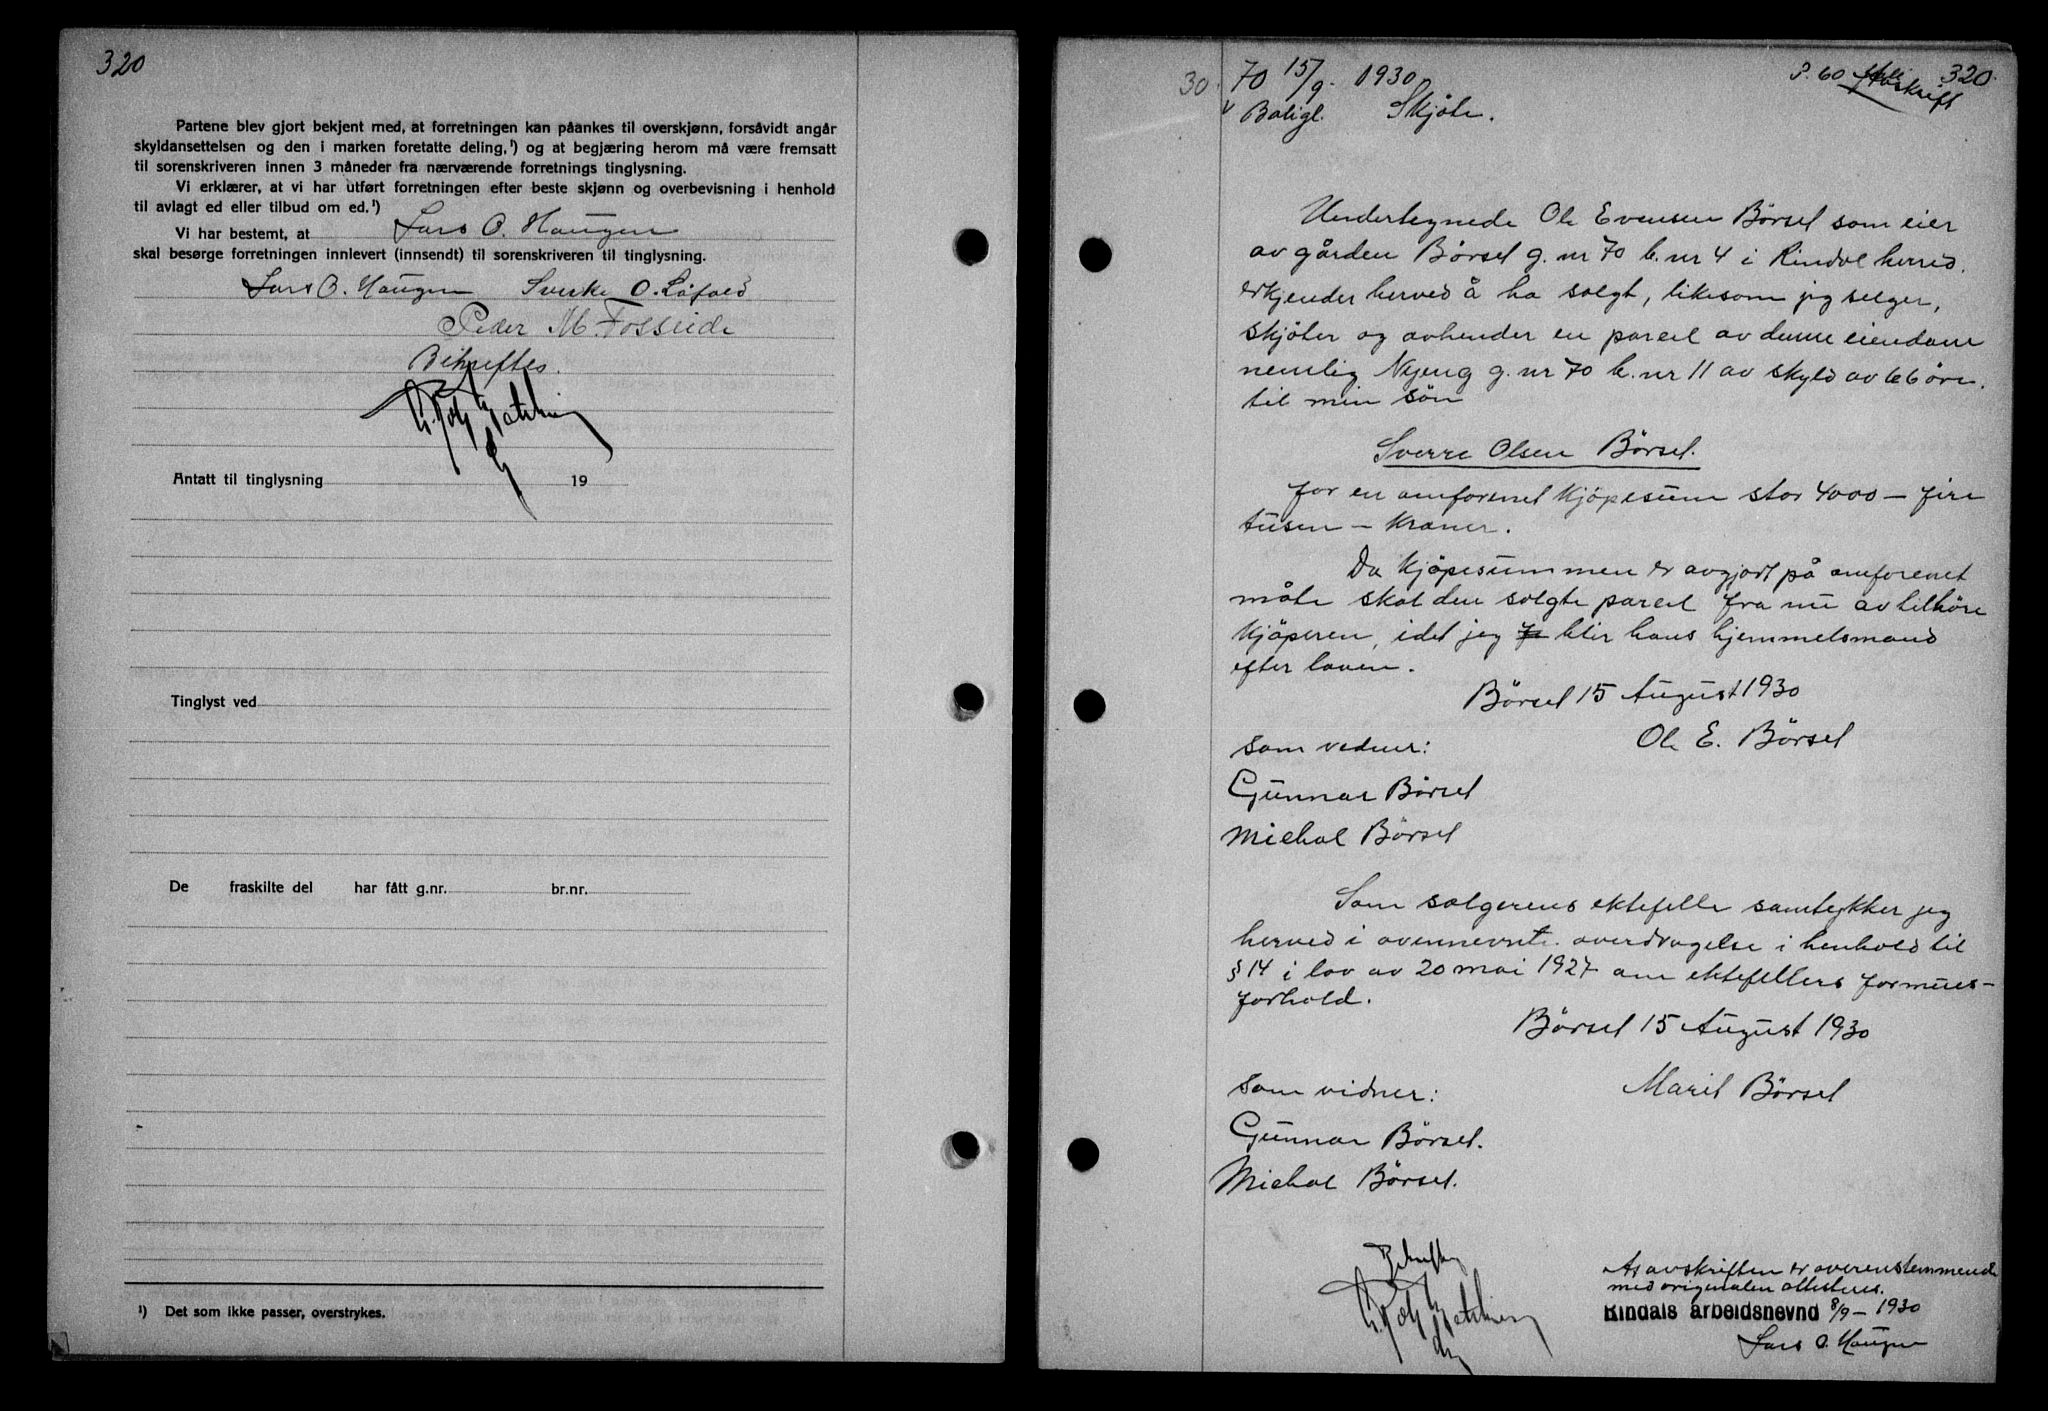 320
Partene blev gjort bekjent med, at forretningen kan påankes til overskjønn, forsåvidt angår
skyldansettelsen og den i marken foretatte deling,¹) og at begjæring herom må være fremsatt
til sorenskriveren innen 3 måneder fra nærværende forretnings tinglysning.
Vi erklærer, at vi har utført forretningen efter beste skjønn og overbevisning i henhold
til avlagt ed eller tilbud om ed.¹)
Vi har bestemt, at Lars O. Haugen
skal besørge forretningen innlevert (innsendt) til sorenskriveren til tinglysning.
Lars O. Haugen Sverke O. Løfald
Peder M. Fosseide
Bekreftes.
Antatt til tinglysning 19
Tinglyst ved
De fraskilte del har fått g.nr. br.nr.
¹) Det som ikke passer, overstrykes.
30. 70 15/9. 1930 P. 60 Avskrift 320.
Boligl. Skjøte.
Undertegnede Ole Evensen Børsel som eier
av gården Børsel g. nr 70 b. nr 4 i Rindal herred.
erkjender herved å ha solgt, likesom jeg selger,
skjøter og avhender en parcel av denne eiendom
nemlig Nyeng g. nr 70 b. nr 11 av skyld av 66 øre.
til min søn
Sverre Olsen Børsel.
for en omforenet kjøpesum stor 4000 – fire
tusen – kroner.
Da kjøpesummen er avgjort på omforenet
måte skal den solgte parcel fra nu av tilhøre
kjøperen, idet jeg blir hans hjemmelsmand
efter loven.
Børsel 15 August 1930
Ole E. Børsel
som vidner:
Gunnar Børsel
Michal Børsel
Som sælgerens ektefelle samtykker jeg
herved i ovennevnte overdragelse i henhold til
§ 14 i lov av 20 mai 1927 om ektefellers formues-
forhold.
Børsel 15 August 1930
som vidner: Marit Børsel
Gunnar Børsel.
Michal Børsel.
Bekreftes
At avskriften er overensstemmende
med originalen attesteres.
Rindals arbeidsnevnd 8/9 – 1930
Lars O. Haugen